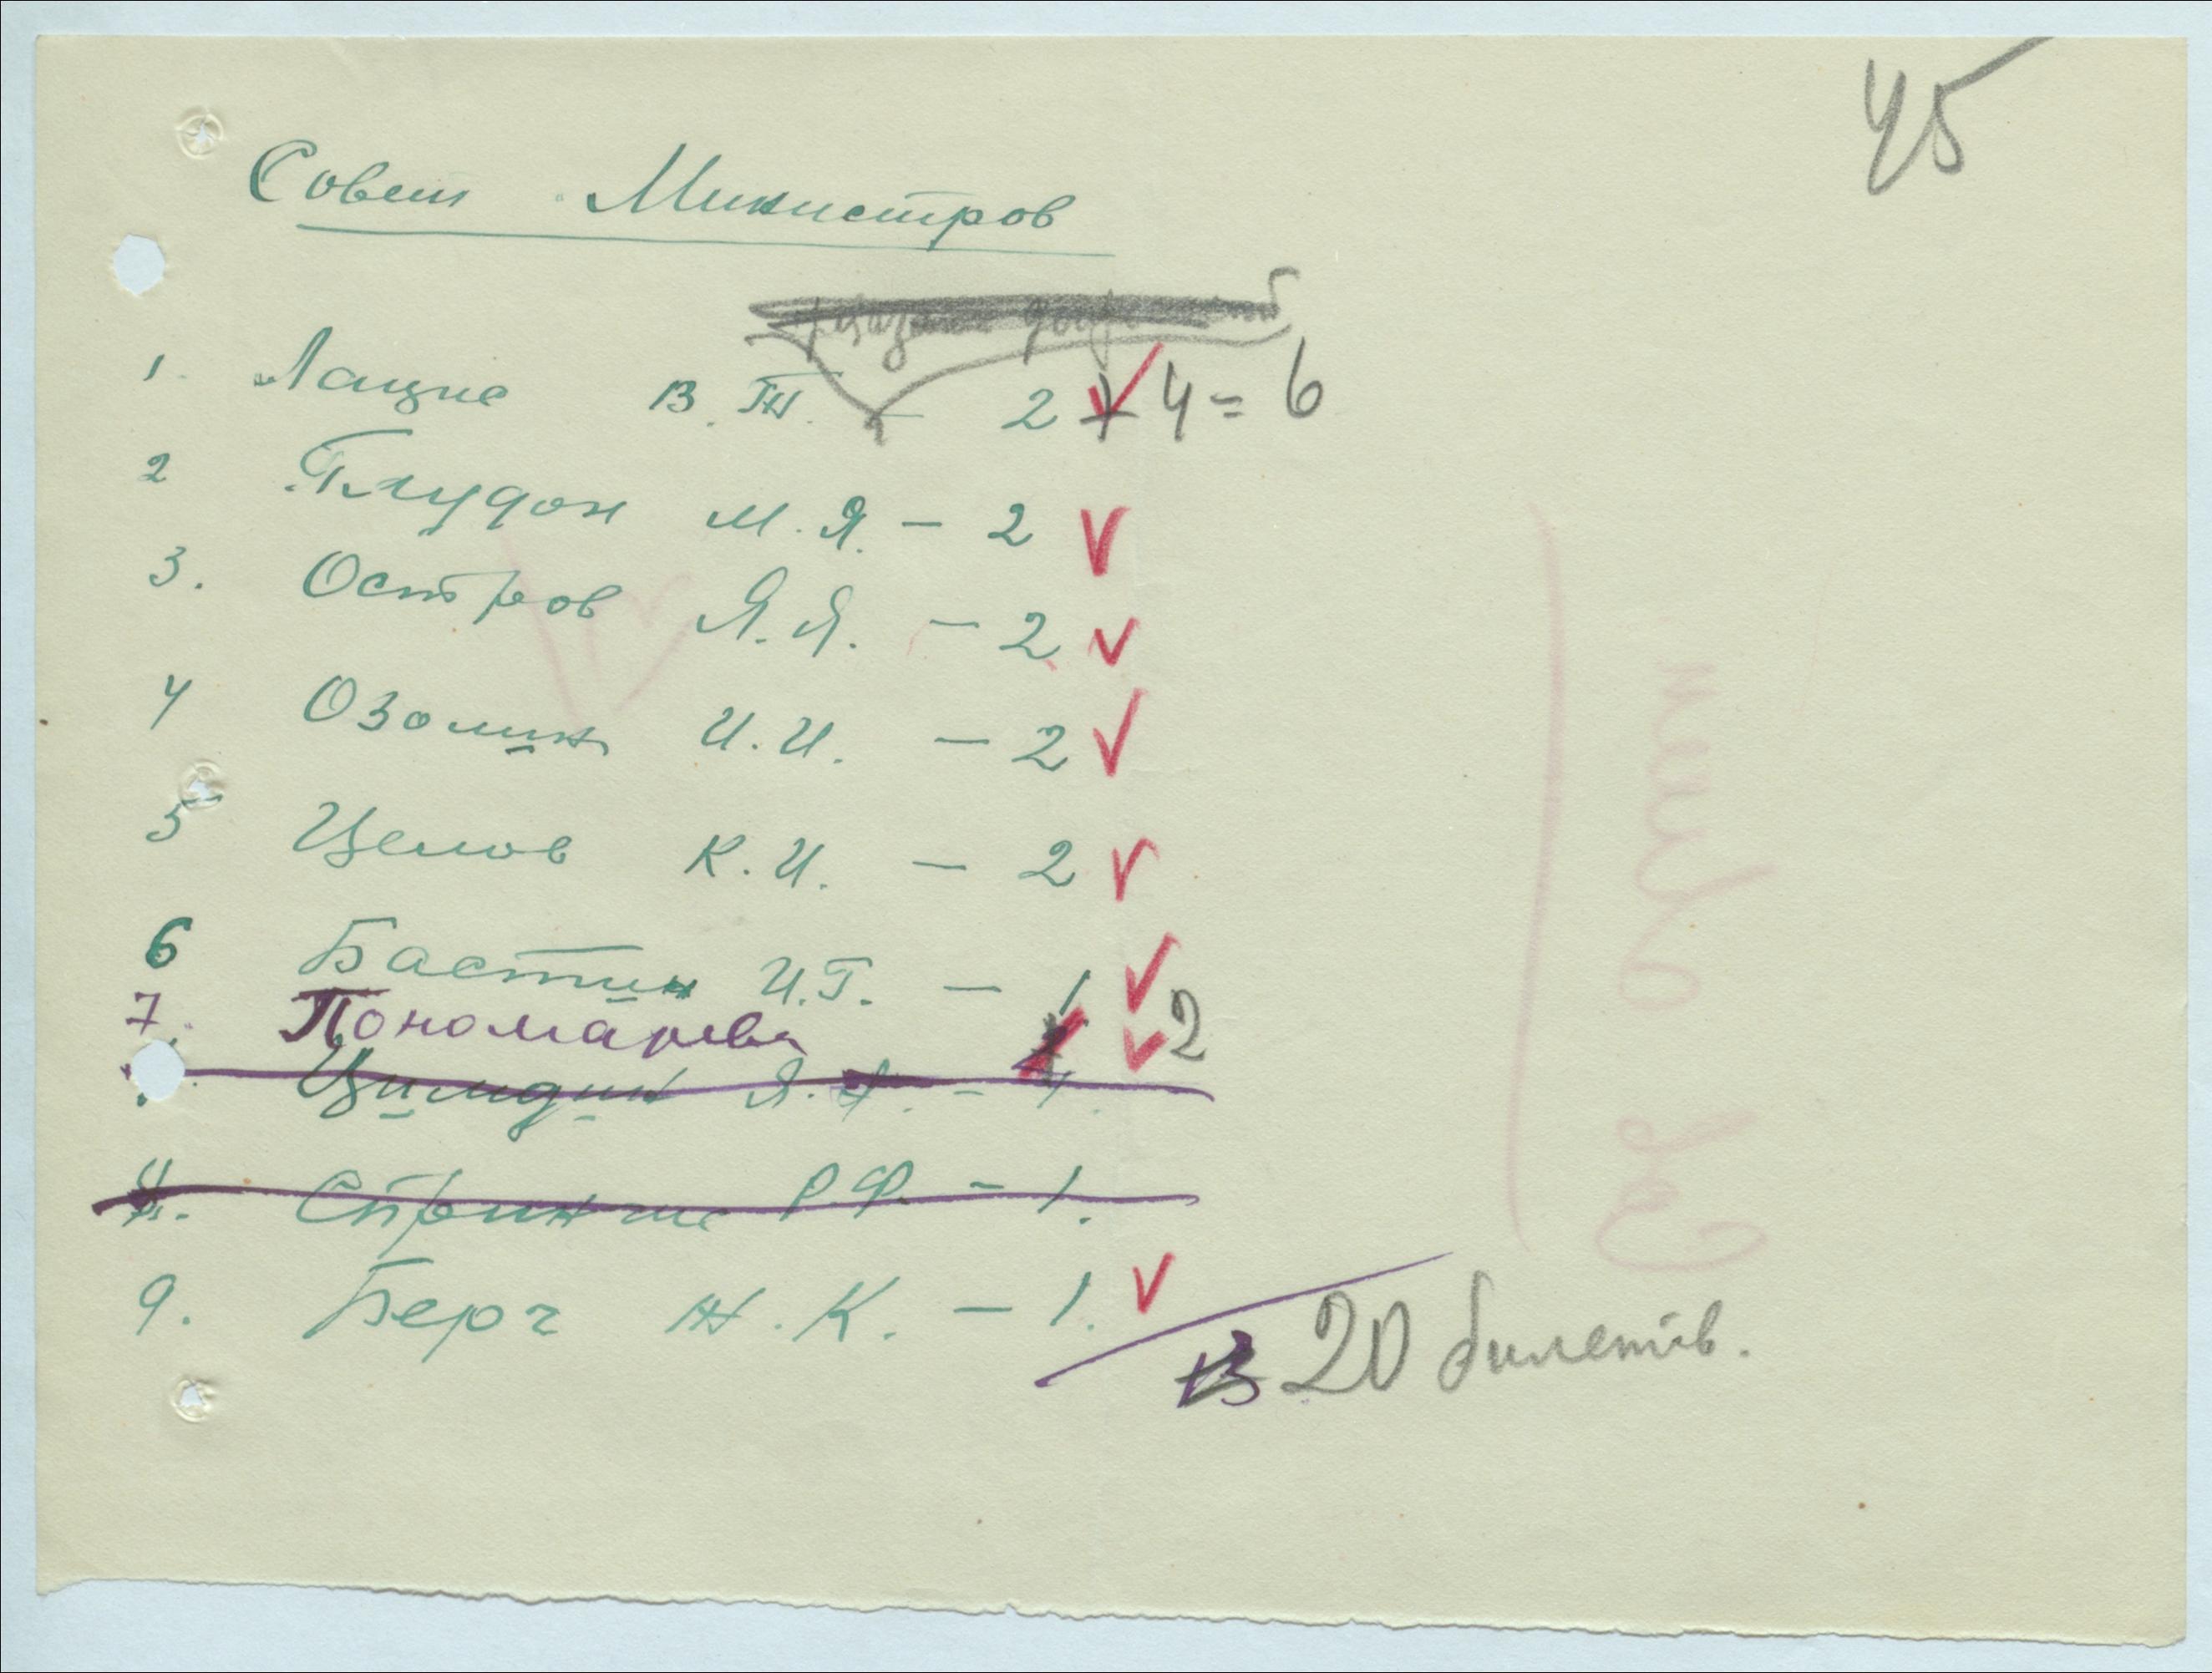 45
Совет Министров
1. Лацис В.Т. — 2 + 4 = 6
2 Глудон М.Я. — 2
3. Остров Я.Я. — 2
4 Озолин И.И. — 2
5 Целов К.И. — 2
6 Бастин И.Г. — 1
7. Пономарева 2
Цимдин Я.
Р.Ф. — 1.
9. Берг Ж.К. — 1.
20 билетов.